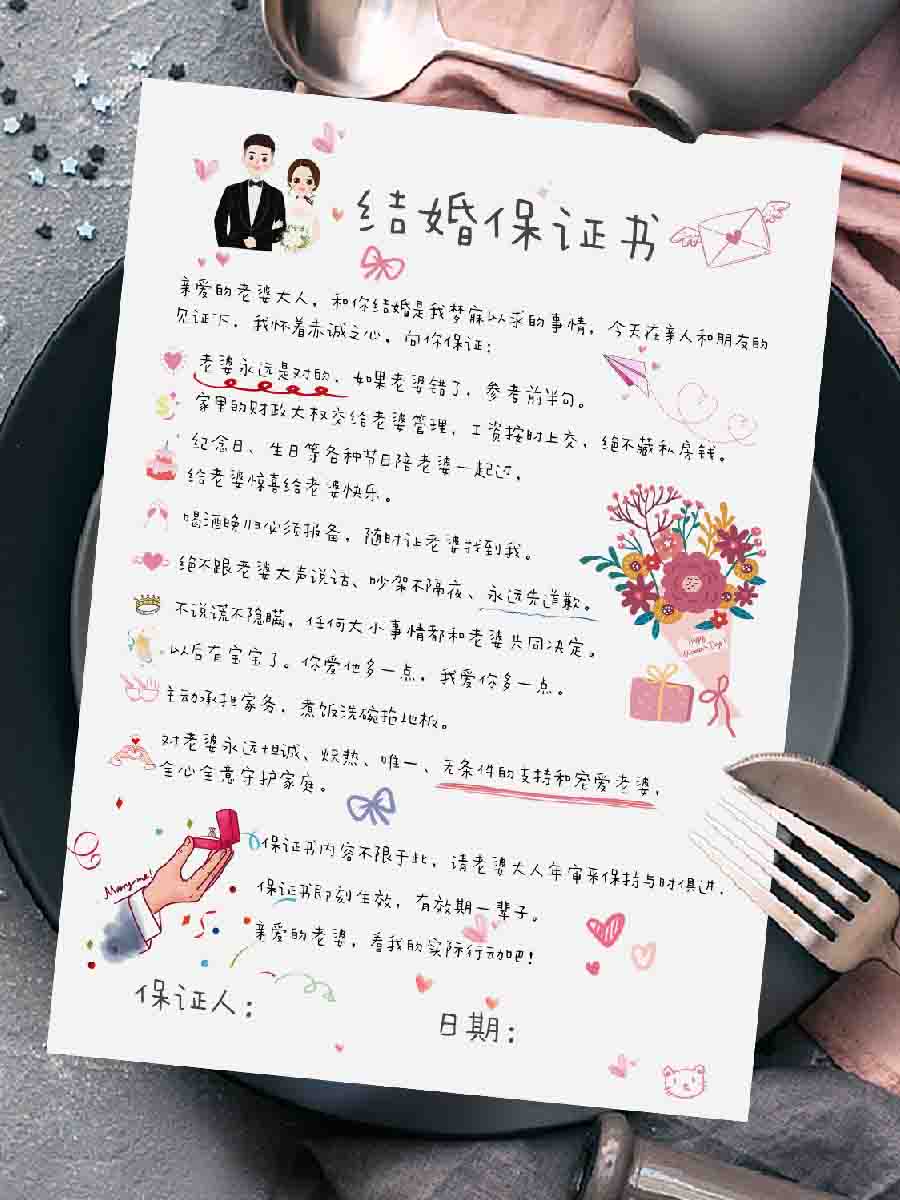 结婚保证书
亲爱的老婆大人，和你结婚是我梦寐以求的事情，今天在亲人和朋友的
见证下，我怀着赤诚之心，向你保证：
老婆永远是对的，如果老婆错了，参考前半句。
家里的财政大权交给老婆管理，工资按时上交，绝不藏私房钱。
纪念日、生日等各种节日陪老婆一起过，
给老婆惊喜给老婆快乐。
喝酒晚归必须报备，随时让老婆找到我。
绝不跟老婆大声说话、吵架不隔夜、永远先道歉。
不说谎不隐瞒，任何大小事情都和老婆共同决定。
以后有宝宝了。你爱他多一点，我爱你多一点。
主动承担家务，煮饭洗碗拖地板。
对老婆永远坦诚、炽热、唯一、无条件的支持和宠爱老婆，
全心全意守护家庭。
保证书内容不限于此，请老婆大人年审来保持与时俱进．
保证书即刻生效，有效期一辈子。
亲爱的老婆，看我的实际行动吧！
保证人：
日期：
Marry me!